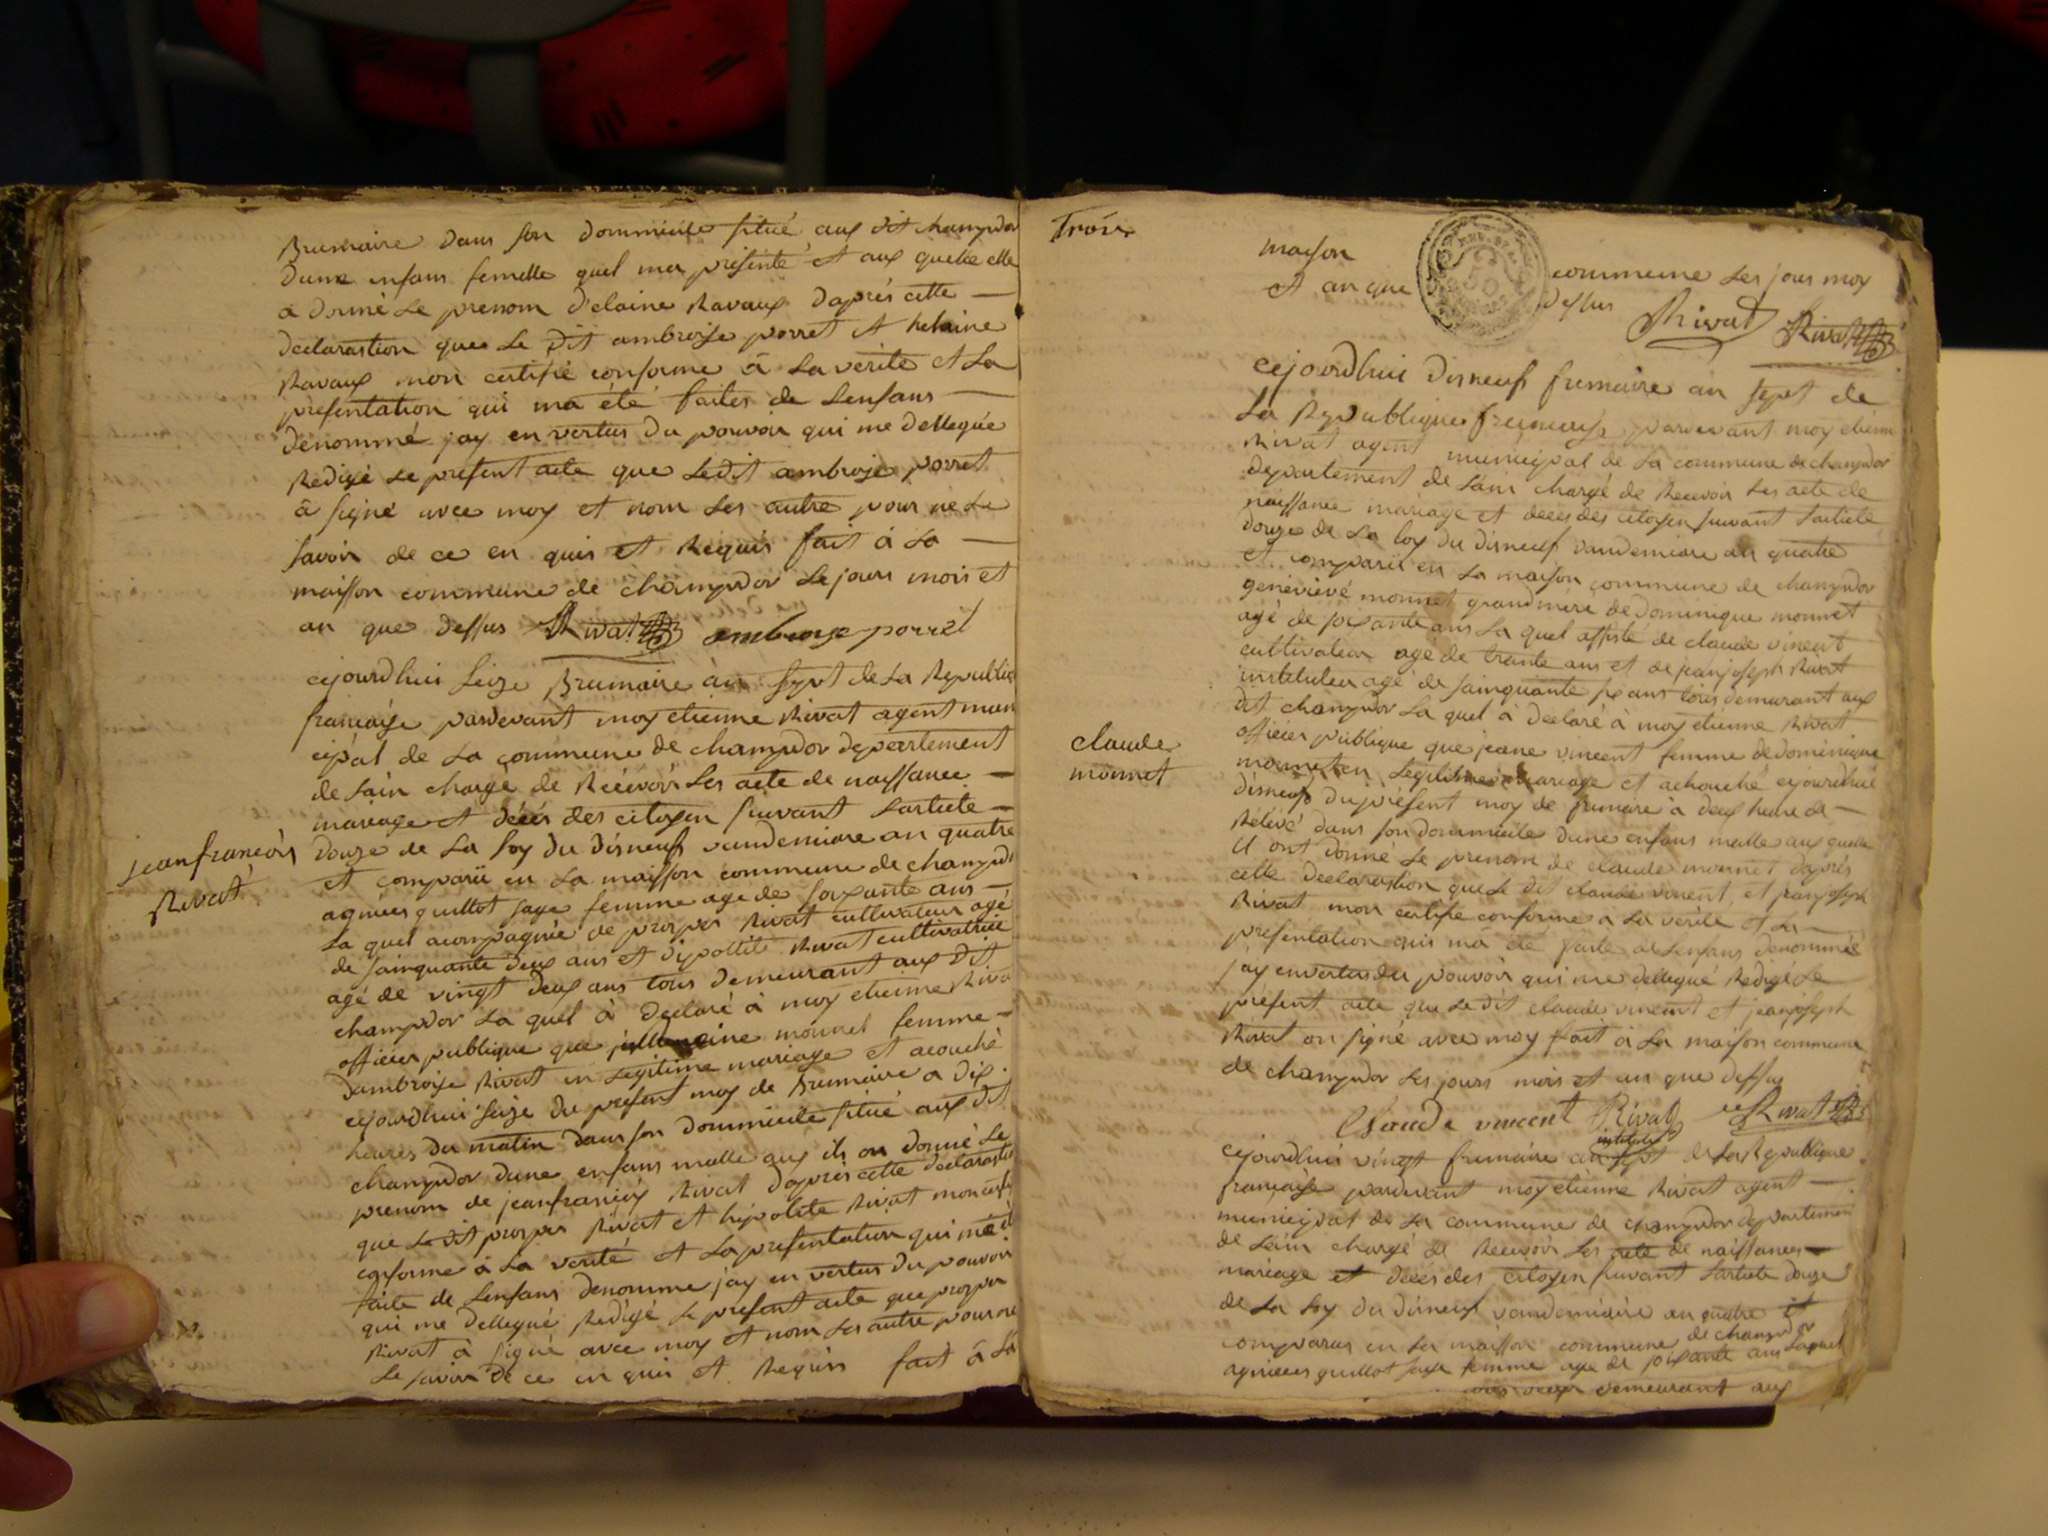 Brumaire dans son dommicile situé aux dit champdor
dune enfans femelle quel ma présenté et aux quelle elle
a donné le prenom delaine Ravaux daprés cette
declarastion que le dit ambroise porret et helaine
Ravaux mon certifié conforme á la verite et la
presentation qui ma été faites de lenfans
denommé jay en vertus du pouvoir qui me dellegúe
Redigé le present acte que ledit ambroise porret
á signé avec moy et nom les autre pour ne le
savoir de ce en quis et Requis fait á la
maisson commune de champdor le jours mois et
an que dessus Rivat ambroise porret
cejourdhui seize Brumaire an sept de la Republiq
francaise pardevant moy etienne Rivat agent mun
cipal de la commune de champdor departement
de lain chargé de Récevoir les acte de naissance
mariage et décés des citoyen suivant larticle
jeanfrancois
Rivat
douze de la loy du disneuf vandemiare an quatre
et comparü en la maisson commune de champdo
agniees guillot sage femme age de soixante ans
la quel acompagnié de prosper Rivat cultivateur agé
de sainquante deux ans et dipollite Rivat cultivatrice
agé de vingt deux ans tous demeurant aux dit
champdor la quel á declaré à moy etienne Riva
officier publique que monnet femme
dambroise Rivat en legitime mariage et acouché
cejourdhui seize du présent moy de Brumaire a dix
heures du matin dans son dommicile situé aux dit
champdor dune enfans malle aux ils on donné le
prenom de jeanfranciois Rivat daprés cette declarastio
que le dit prosper Rivat et hipolite Rivat mon certifi
conforme á la verité et la presentation qui má é
faite de lenfans denomme jay en vertus du pouvoir
qui me dellegué Redigé le present acte que prosper
Rivat á signé avec moy et nom les autre pour ne
le savoir de ce en quis et Requis fait á la
Trois
maison commune les jours moy
et an que dessus Rivat Rivat
cejourdhui disneuf frimaire an sept de
la Republique francaise pardevant moy etienne
Rivat agent municipal de la commune de champdor
departement de lain chargé de Recevoir les acte de
naissance mariage et deces des citoyen suivant larticle
douze de la loy du disneuf vandemiare an quatre
et comparü en la maison commune de champdor
genevievé monnet grandmére de dominique monnet
agé de soixante ans la quel assisté de claude vincent
cultivateur age de trante ans et de jeanjoseph Rivat
instituteur agé de sainquante six ans tous demurant aux
dit champdor la quel à declaré à moy etienne Rivat
officier publique que jeane vincent femme de dominique
claude
monnet
monnet en legitime mariage et achouché cejourdhui
disneuf du présent moy de frimaire à deux heure de
Rélévé dans son dommicile dune enfans malle aux quelle
il ont donné le prenom de claude monnet daprés
cette declarastion que le dit claude vincent et jeanjoseph
Rivat mon certifie conforme a la verite et la
presentation quis má été faite de lenfans denommée
jay envertus du pouvoir qui me dellegué Redigé le
présent acte que le dit claude vincent et jeanjoseph
Rivat on signé avec moy fait á la maison commune
de champdor les jours mois et an que dessus
Claude vincent Rivat Rivat
instituteur
cejourdhui vingt frimaire an sept de la Republique
française pardevant moy etienne Rivat agent
municipal de la commune de champdor departement
de lain chargé de Recevoir les acte de naissances
mariage et deces des citoyen suivant larticle douze
de la loy du disneuf vandemiaire an quatre et
comparus en la maisson commune de champdor
agniees guillot sage femme age de soixante ans laquel
demeurant aux